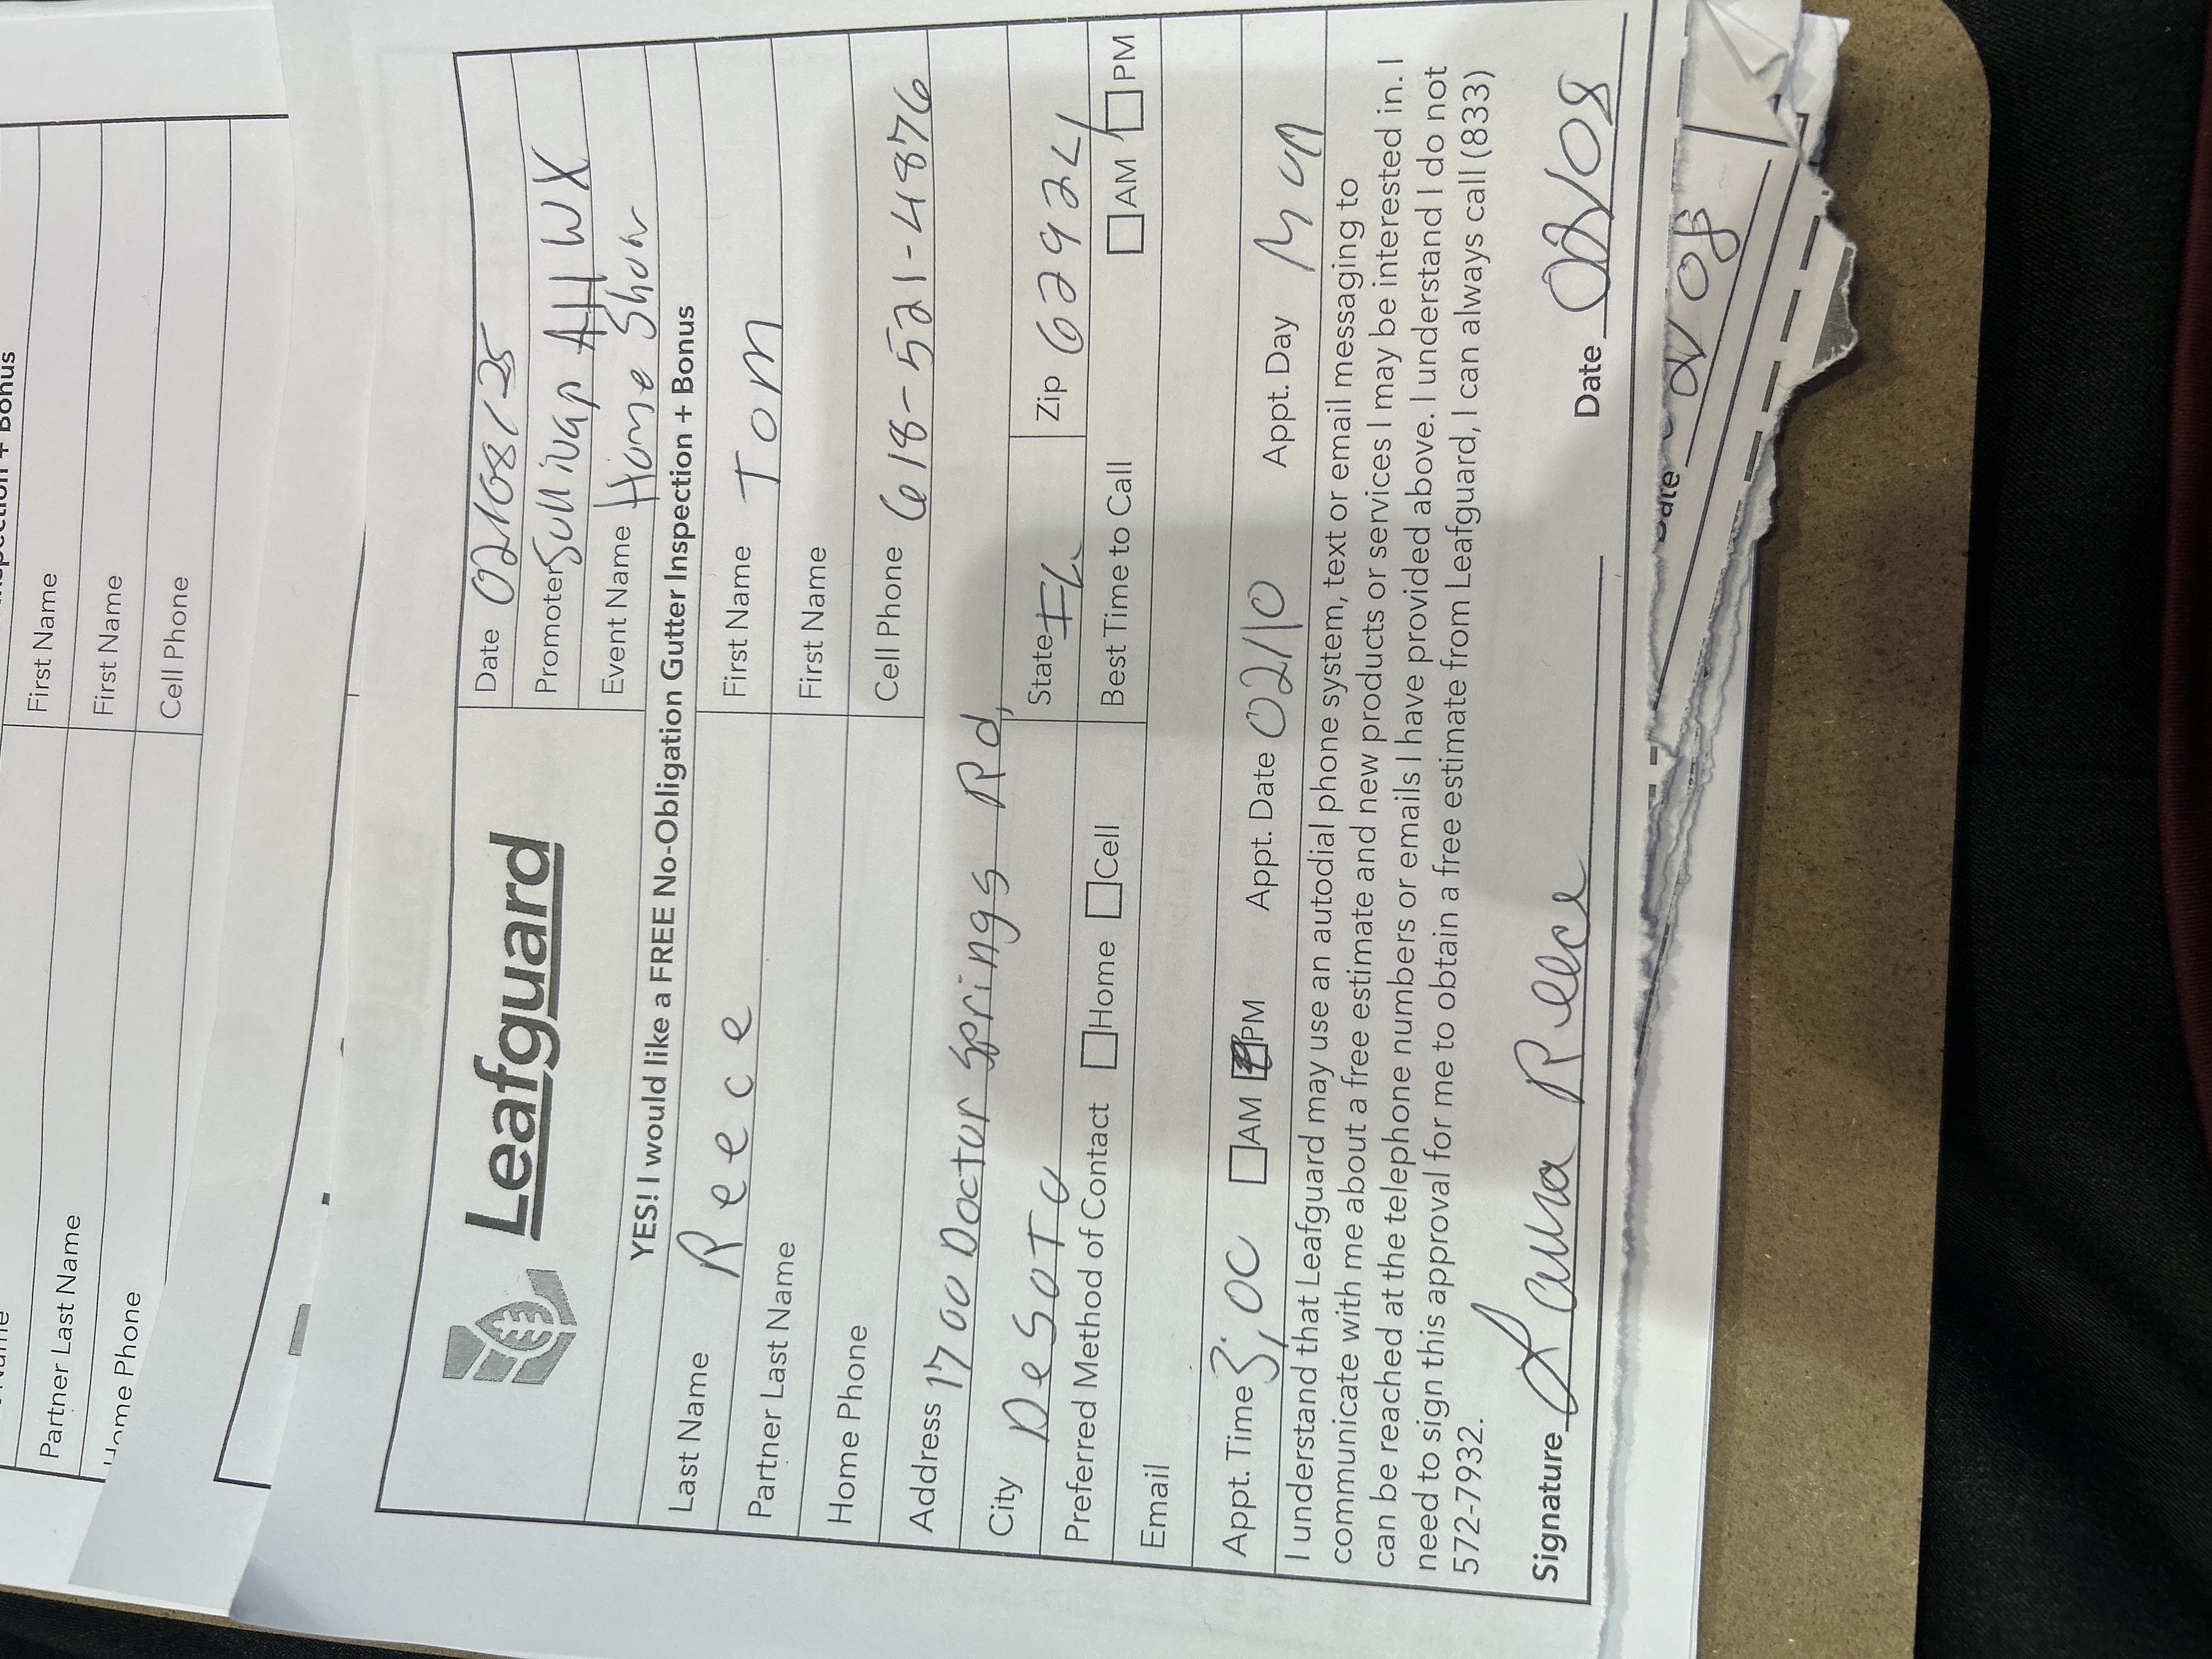 Inspection + Bonus
Name
First Name
Partner Last Name
First Name
Home Phone
Cell Phone
Leafguard
Date 02/08/25
Promoter Sullivan AHWX
Event Name Home Show
YES! I would like a FREE No-Obligation Gutter Inspection + Bonus
Last Name Reece
First Name Tom
Partner Last Name
First Name
Home Phone
Cell Phone 618-521-4876
Address 1700 Doctor Springs Rd,
City DeSoto
State IL
Zip 62924
Preferred Method of Contact Home Cell
Best Time to Call AM PM
Email
Appt. Time 3:00 AM PM Appt. Date 02/10 Appt. Day Mon
I understand that Leafguard may use an autodial phone system, text or email messaging to
communicate with me about a free estimate and new products or services I may be interested in. I
can be reached at the telephone numbers or emails I have provided above. I understand I do not
need to sign this approval for me to obtain a free estimate from Leafguard, I can always call (833)
572-7932.
Signature Laura Reece
Date 02/08
Date 02/08